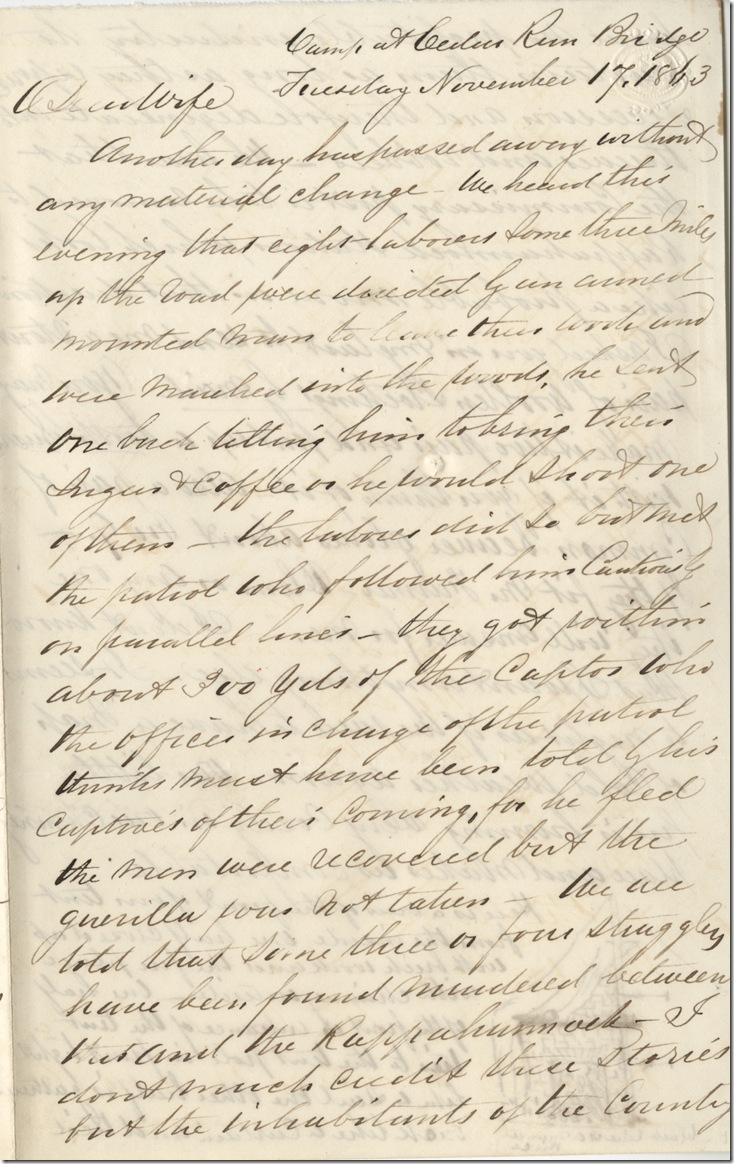 Camp at Cedar Run Bridge
Tuesday November 17, 1863
Dear Wife
Another day has passed away without
any material change - We heard this
evening that eight laborers some three Miles
up the road were directed by an armed
mounted man to leave their work and
were marched into the woods, he sent
one back telling him to bring their
Sugar & Coffee or he would shoot one
of them - the laborer did so but met
the patrol who followed him Cautiously
on parallel lines - they got within
about 300 Yds of the Captor who
the officer in charge of the patrol
thinks must have been told by his
Captives of their Coming, for he fled
the men were recovered but the
guerilla was not taken - We are
told that some three or four stragglers
have been found murdered between
this and the Rappahannock - I
dont much credit these stories
but the inhabitants of the County